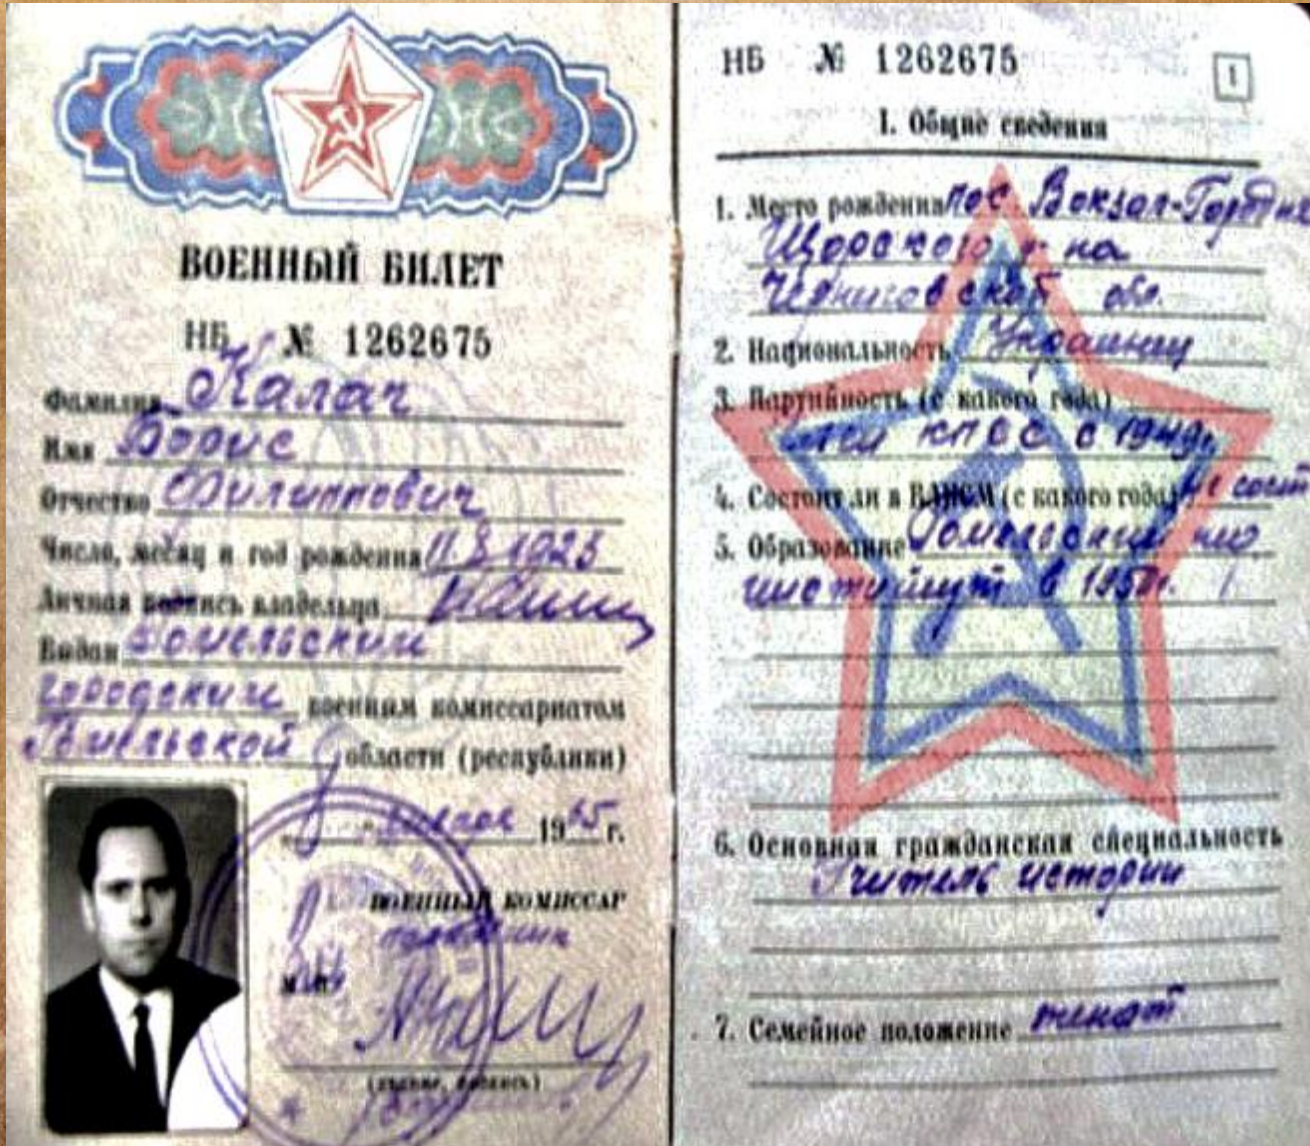 ВОЕННЫЙ БИЛЕТ
НБ № 1262675
Фамилия Калач
Имя Борис
Отчество Филиппович
Число, месяц и год рождения
Личная подпись владельца
Выдан Гомельским
городским военным комиссариатом
Гомельской области (республики)
1965 г.
ВОЕННЫЙ КОМИССАР
М.П.
НБ № 1262675
1
I. Общие сведения
1. Место рождения пос Вокзал-Городня
Щорского р-на
Черниговской обл.
2. Национальность Украинец
3. Партийность (с какого года)
член КПСС с 1949г.
4. Состоит ли в ВЛКСМ (с какого года) не сост
5. Образование Гомельский
институт в
6. Основная гражданская специальность
Учитель истории
7. Семейное положение женат